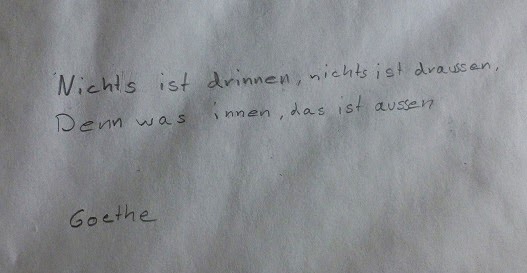 Nichts ist drinnen, nichts ist draussen,
Denn was innen, das ist aussen
Goethe